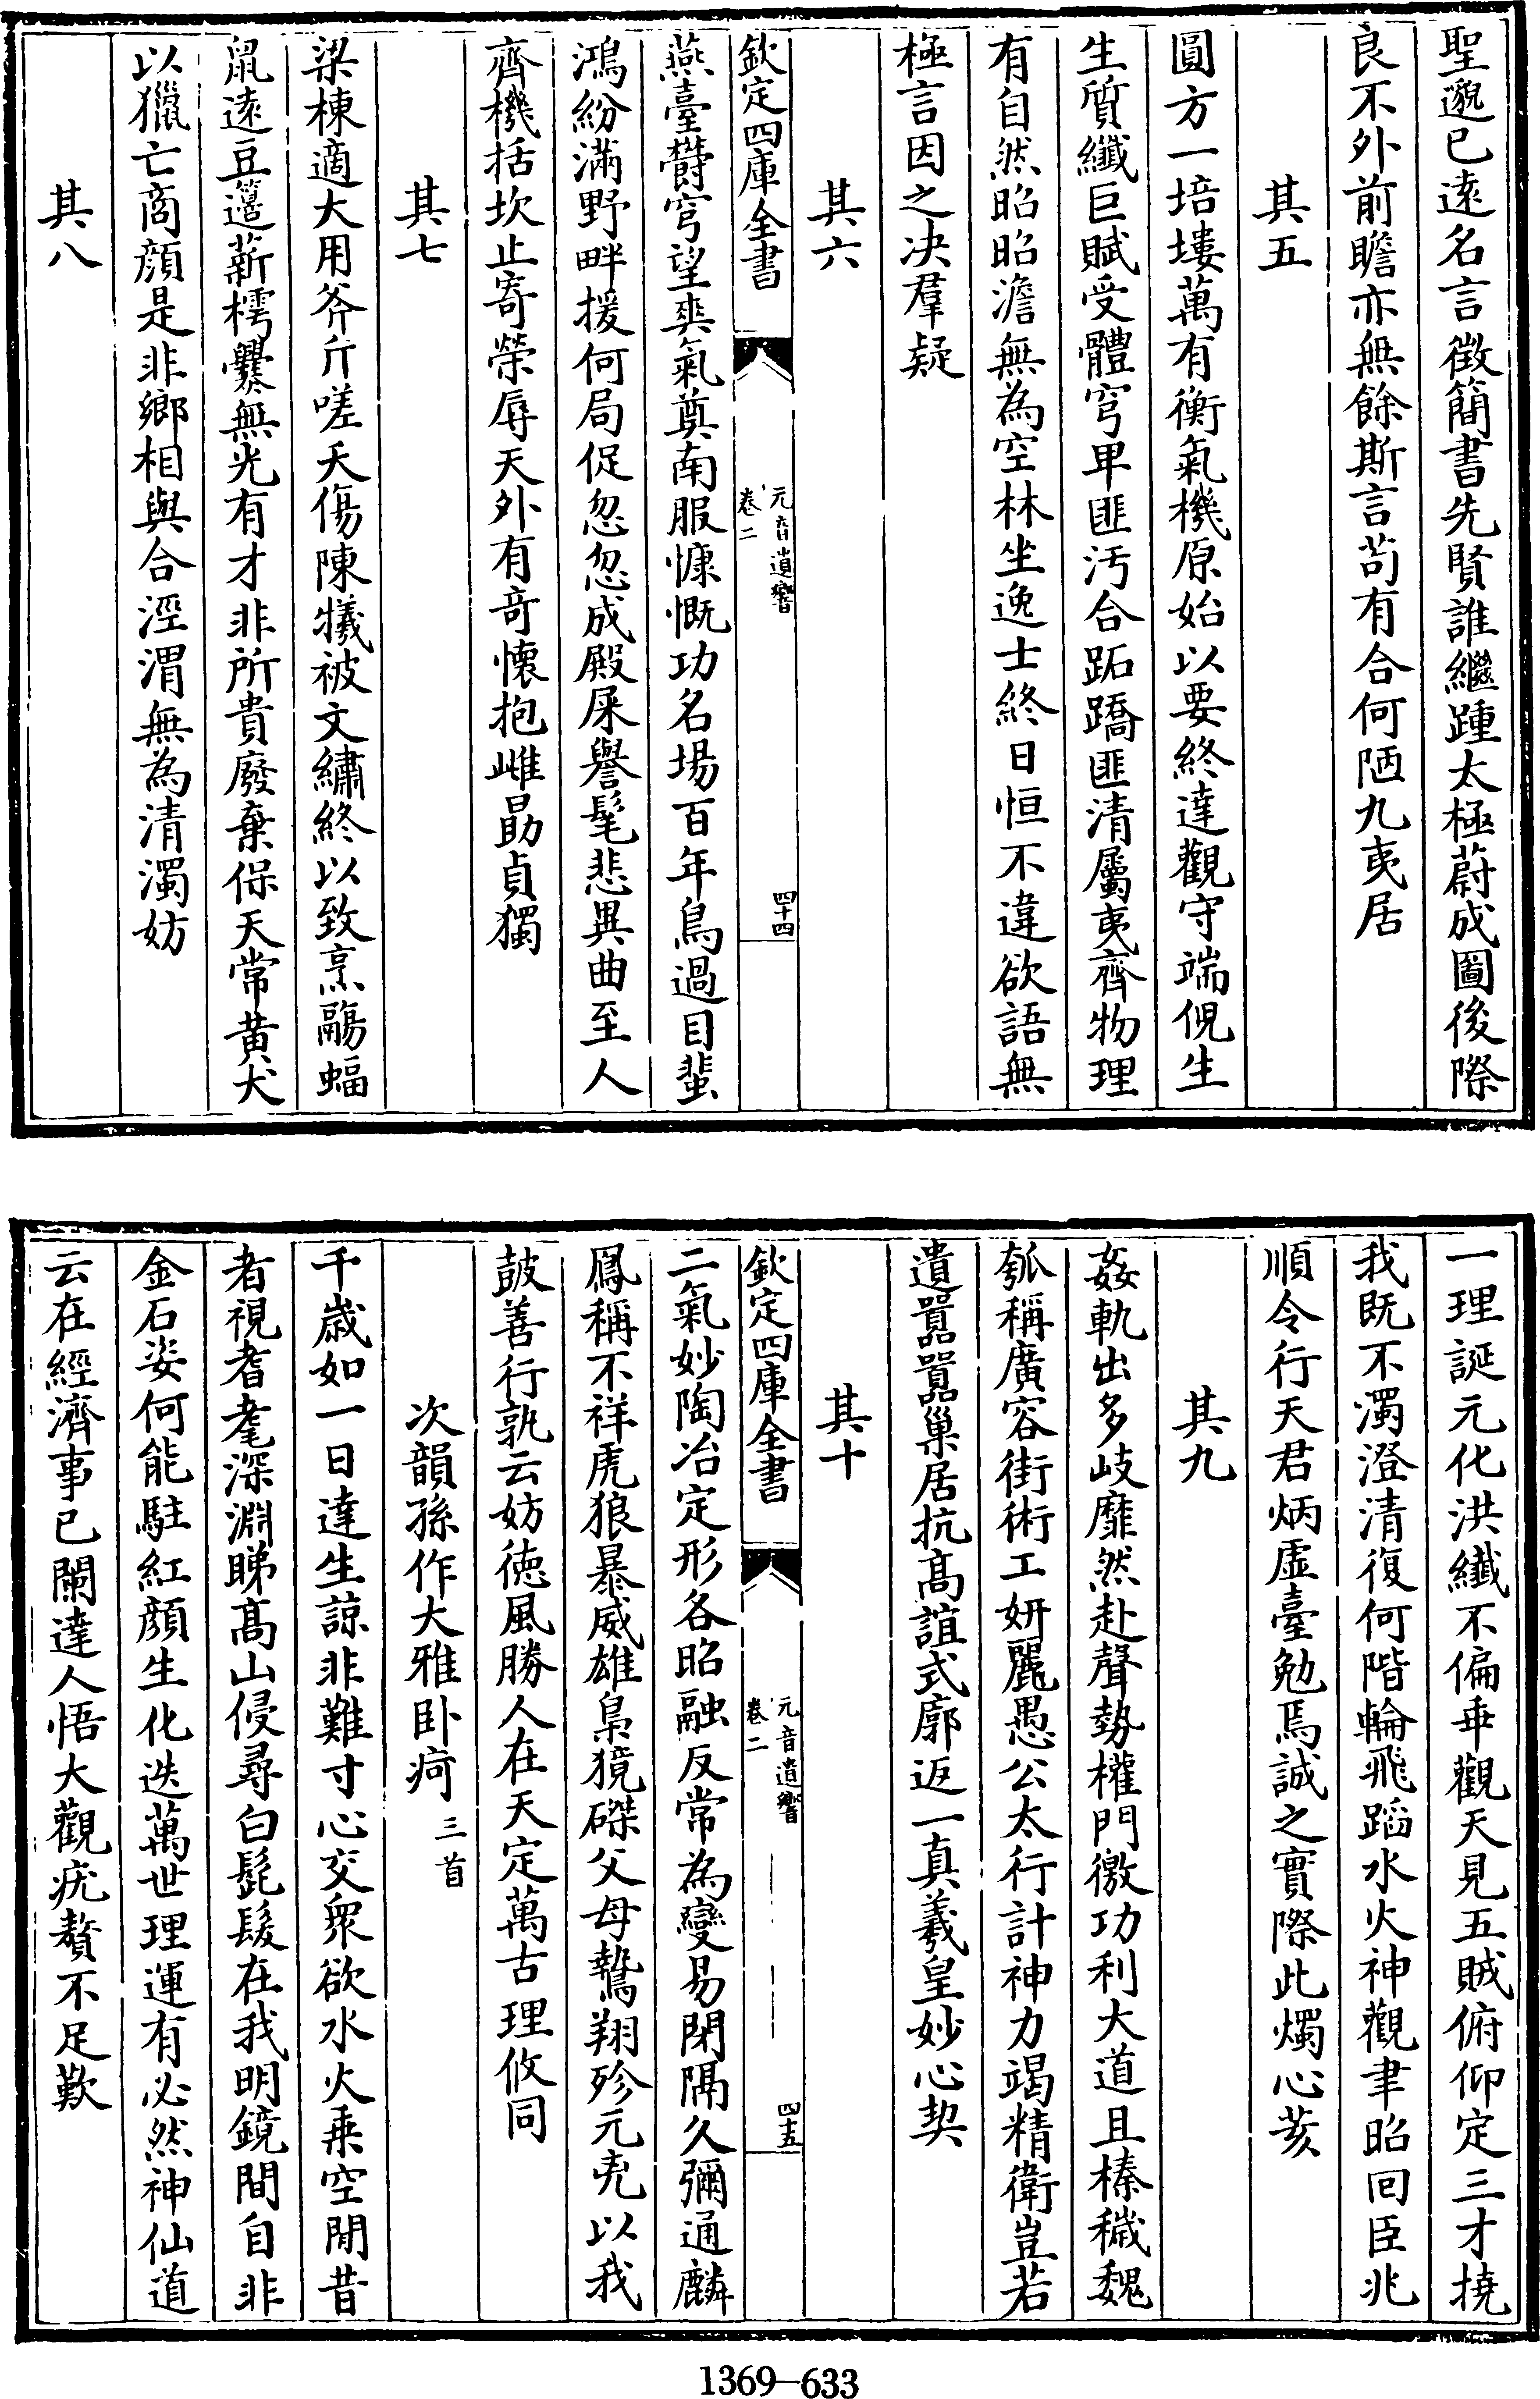 聖邈已遠名言徴簡書先賢誰繼踵太極蔚成圖後際
良不外前瞻亦無餘斯言茍有合何陋九夷居
其五
圓方一培塿萬有衡氣機原始以要終達觀守端倪生
生質纖巨賦受體穹卑匪汚合跖蹻匪清屬夷齊物理
有自然昭昭澹無為空林坐逸士終日恒不違欲語無
極言因之决羣疑
其六
欽定四庫全書
元音遺響
卷二
四十四
燕臺欝穹望爽氣奠南服慷慨功名場百年鳥過目蜚
鴻紛滿野畔援何局促忽忽成殿屎譽髦悲異曲至人
齊機括坎止寄榮辱天外有奇懷抱雌勗貞獨
其七
梁棟適大用斧斤嗟夭傷陳犧被文繡終以致烹鬺蝠
鼠遠豆籩薪樗爨無光有才非所貴廢棄保天常黄犬
以獵亡商顔是非鄉相與合涇渭無為清濁妨
其八
一理誕元化洪纖不偏乖觀天見五賊俯仰定三才撓
我既不濁澄清復何階輪飛蹈水火神觀聿昭回臣兆
順令行天君炳虚臺勉焉誠之實際此燭心荄
其九
姦軌出多岐靡然赴聲勢權門徼功利大道且榛穢魏
瓠稱廣容街術工妍麗愚公太行計神力竭精衛豈若
遺囂囂巢居抗髙誼式廓返一真羲皇妙心契
其十
欽定四庫全書
元音遺響
卷二
四十五
二氣妙陶冶定形各昭融反常為變易閉隔久彌通麟
鳳稱不祥虎狼暴威雄梟獍磔父母鷙翔殄元兇以我
詖善行孰云妨徳風勝人在天定萬古理攸同
次韻孫作大雅卧疴三首
千歲如一日達生諒非難寸心交衆欲水火乘空閒昔
者視耆耄深淵睇髙山侵尋白髭髮在我明鏡間自非
金石姿何能駐紅顔生化迭萬世理運有必然神仙道
云在經濟事已闌達人悟大觀疣贅不足歎
1369—633